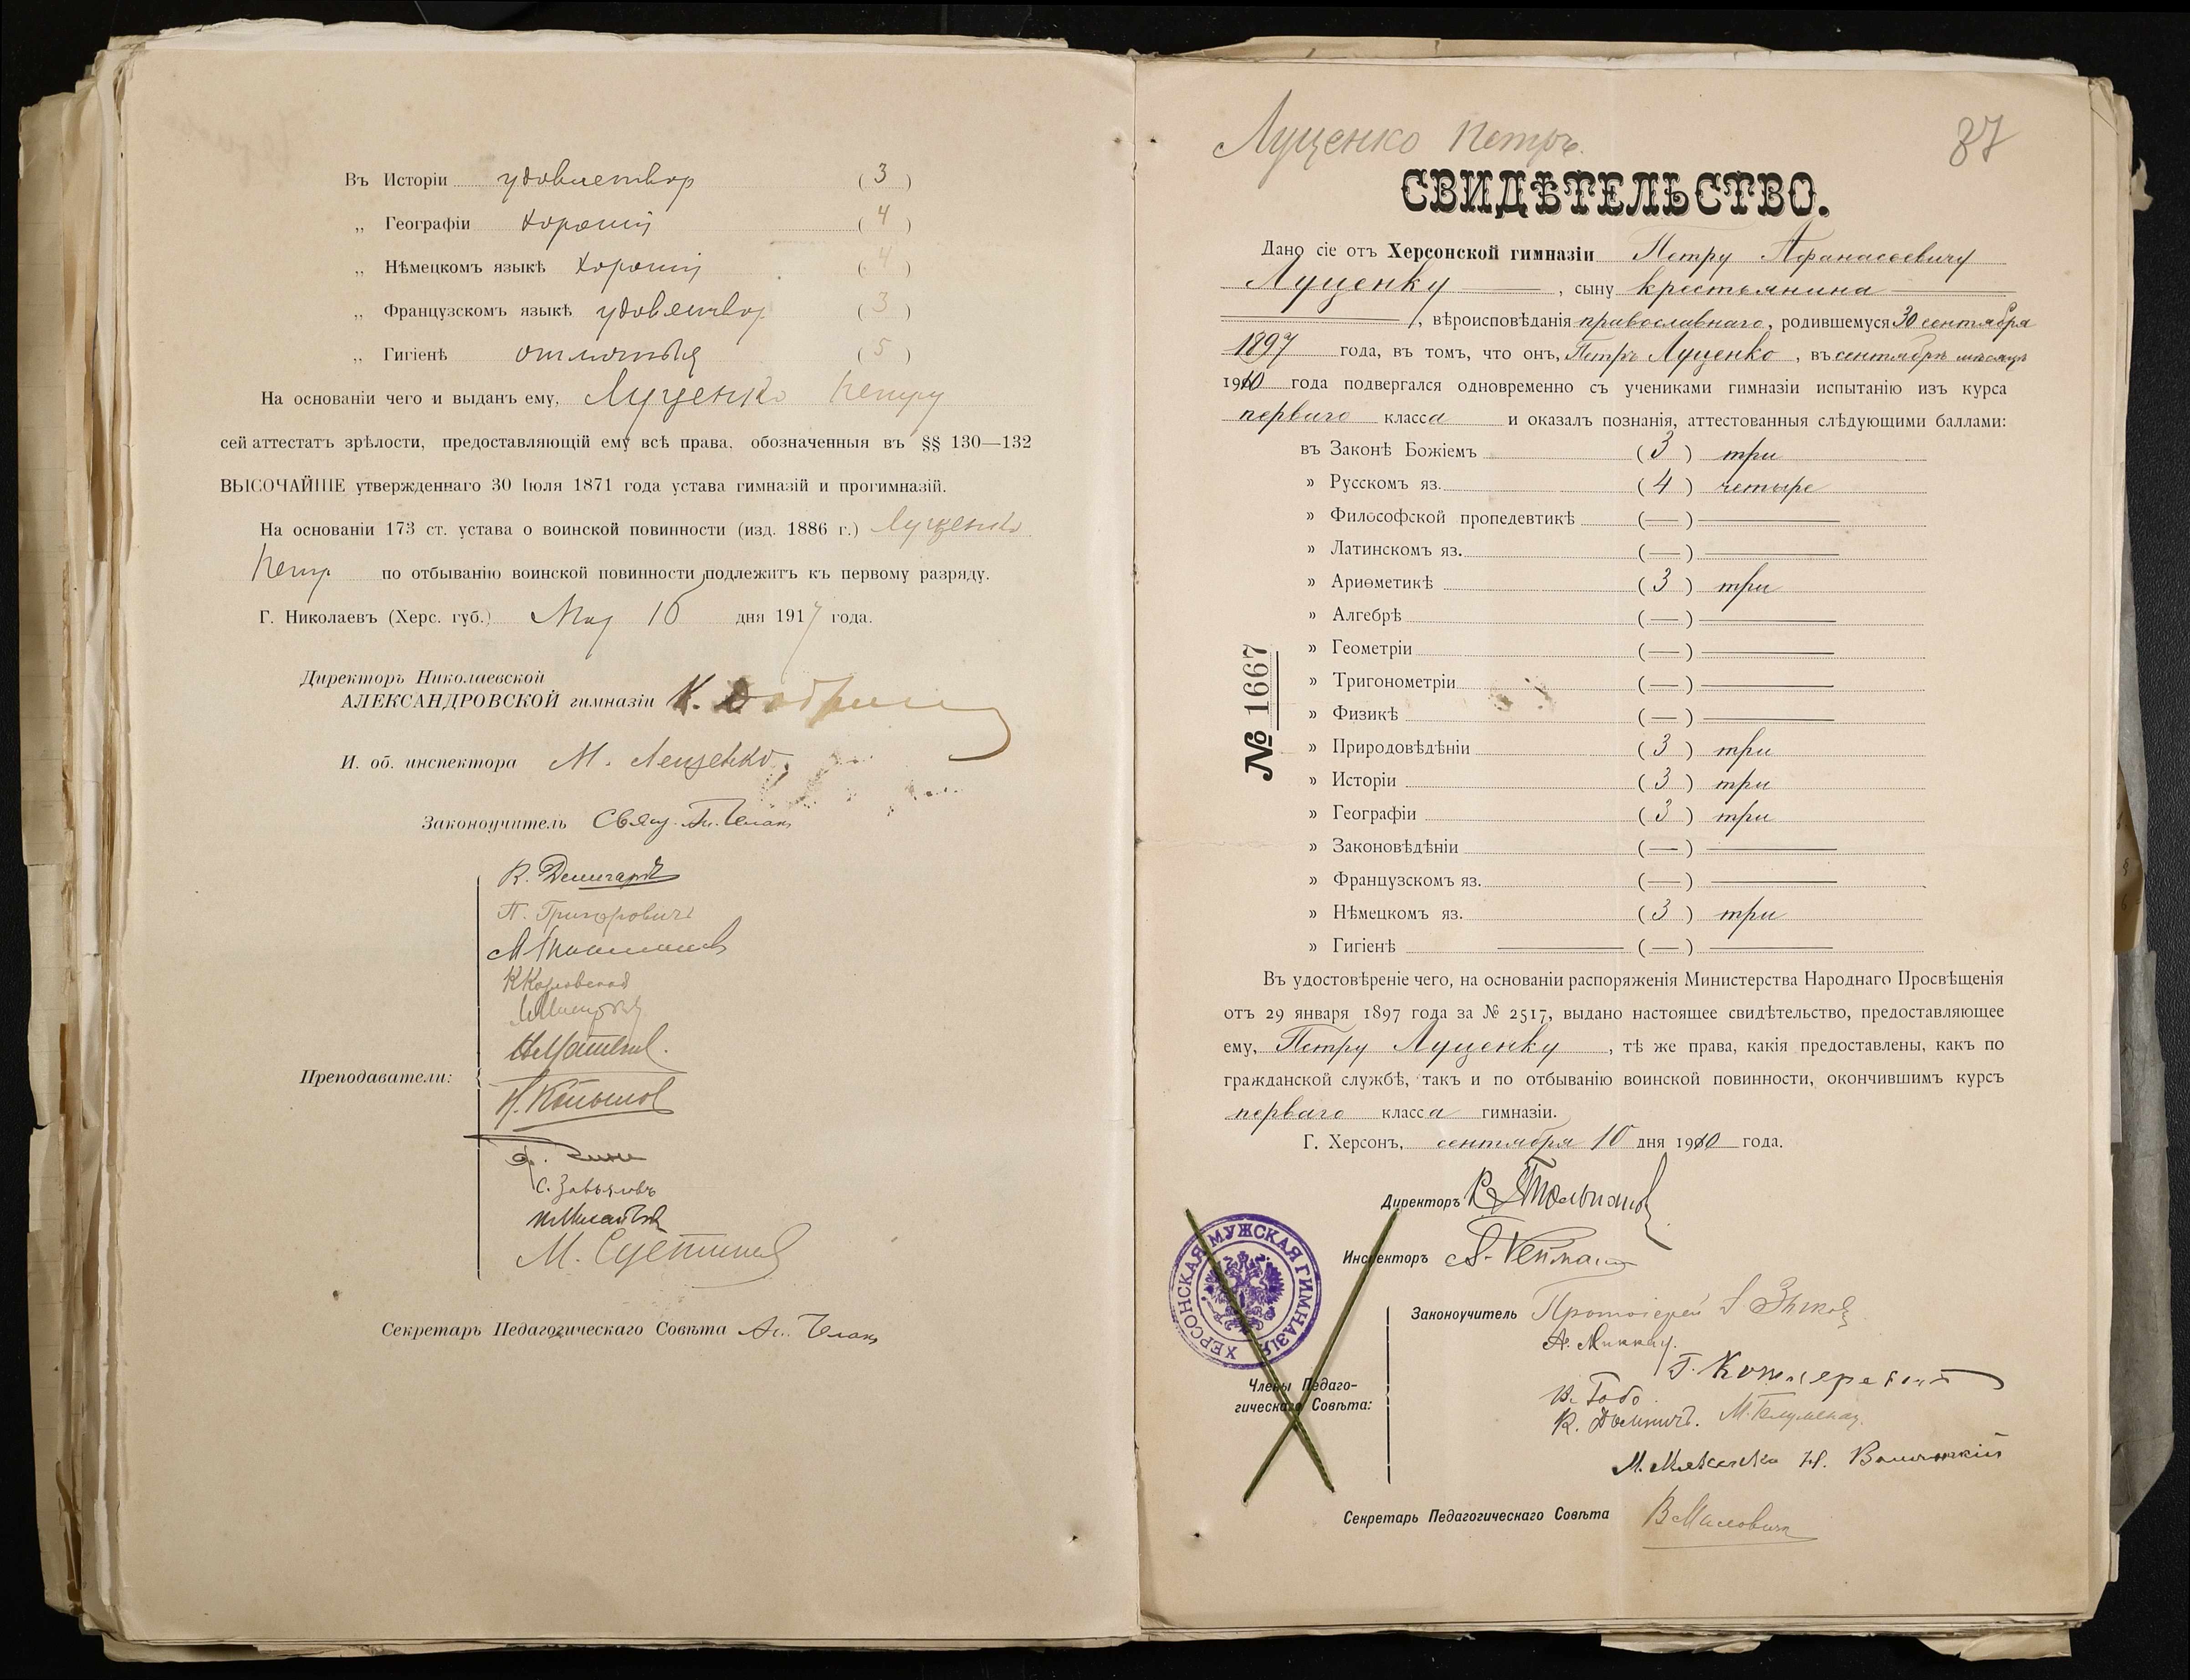 Въ Исторіи удовлетвор (3)
„ Географіи хорошія (4)
„ Нѣмецкомъ языкѣ хорошія (4)
„ Французскомъ языкѣ удовлетвор (3)
„ Гигіенѣ отличныя (5)
На основаніи чего и выданъ ему, Луценко Петру
сей аттестатъ зрѣлости, предоставляющій ему всѣ права, обозначенныя въ §§ 130—132
ВЫСОЧАЙШЕ утвержденнаго 30 Іюля 1871 года устава гимназій и прогимназій.
На основаніи 173 ст. устава о воинской повинности (изд. 1886 г.) Луценко
Петр по отбыванію воинской повинности подлежитъ къ первому разряду.
Г. Николаевъ (Херс. губ.) Мая 16 дня 1917 года.
Директоръ Николаевской
АЛЕКСАНДРОВСКОЙ гимназіи К.
И. об. инспектора М. Лещенко
Законоучитель Свящ.
П. Григорович
Преподаватели:
С. Завьяловъ
Секретарь Педагогическаго Совѣта
Луценко Петръ.
37
СВИДѢТЕЛЬСТВО.
Дано сіе отъ Херсонской гимназіи Петру Афанасьевичу
Луценку, сыну крестьянина
, вѣроисповѣданія православнаго, родившемуся 30 сентября
1897 года, въ томъ, что онъ, Петръ Луценко, въ сентябрѣ мѣсяцѣ
1910 года подвергался одновременно съ учениками гимназіи испытанію изъ курса
перваго класса и оказалъ познанія, аттестованныя слѣдующими баллами:
въ Законѣ Божіемъ (3) три
» Русскомъ яз. (4) четыре
» Философской пропедевтикѣ (—)
» Латинскомъ яз. (—)
» Ариѳметикѣ (3) три
» Алгебрѣ (—)
» Геометріи (—)
» Тригонометріи (—)
» Физикѣ (—)
» Природовѣдѣніи (3) три
» Исторіи (3) три
» Географіи (3) три
» Законовѣдѣніи (—)
» Французскомъ яз. (—)
» Нѣмецкомъ яз. (3) три
» Гигіенѣ (—)
№ 1667
Въ удостовѣреніе чего, на основаніи распоряженія Министерства Народнаго Просвѣщенія
отъ 29 января 1897 года за № 2517, выдано настоящее свидѣтельство, предоставляющее
ему, Петру Луценку, тѣ же права, какія предоставлены, какъ по
гражданской службѣ, такъ и по отбыванію воинской повинности, окончившимъ курсъ
перваго класса гимназіи.
Г. Херсонъ, сентября 10 дня 1910 года.
Директоръ
Инспекторъ
ХЕРСОНСКАЯ МУЖСКАЯ ГИМНАЗІЯ
Законоучитель Протоіерей
Члены Педаго-
гическаго Совѣта:
Секретарь Педагогическаго Совѣта